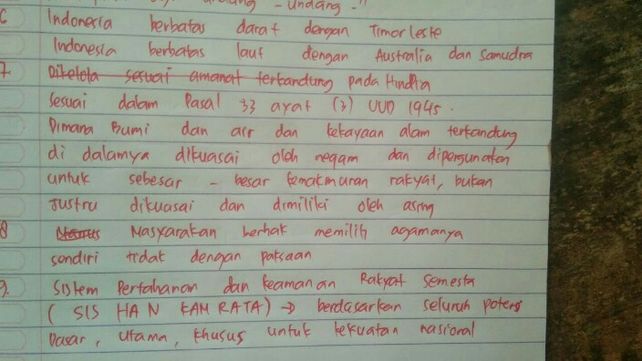 undang - undang - "
6 Indonesia berbatas darat dengan Timor leste
Indonesia berbatas laut dengan Australia dan Samudra
7. Dikelola sesuai amanat terkandung pada Hindia
Sesuai dalam Pasal 33 ayat (3) UUD 1945.
Dimana Bumi dan air dan kekayaan alam terkandung
di dalamya dikuasai oleh negara dan dipergunakan
untuk sebesar - besar kemakmuran rakyat, bukan
Justru dikuasai dan dimiliki oleh asing
8 Masyarakan berhak memilih agamanya
sendiri tidak dengan paksaan
9. Sistem Pertahanan dan keamanan Rakyat Semesta
( SIS HAN KAM RATA) → berdasarkan seluruh potens
Dasar, utama, khusus untuk kekuatan nasional